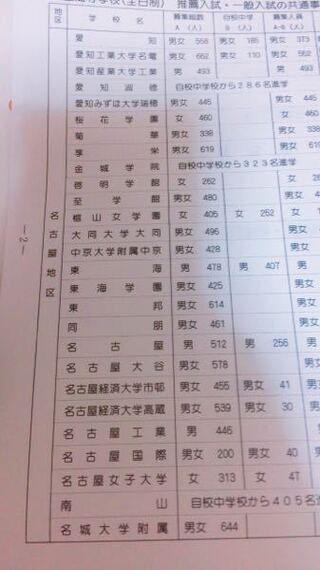 学校(全日制) 推薦入試・一般入試の共通事
地区 学校名 募集総数 A (人) 自校中学 B (人) 募集人員 A-B (人)
愛知 男女 558 男女 185 男女 373
愛知工業大学名電 男女 662 男女 110 男女 552
愛知産業大学工業 男 493 男 493
愛知淑徳 自校中学校から286名進学
愛知みずほ大学瑞穂 男女 445 男女 445
桜花学園 女 460 女 460
菊華 男女 338 男女 338
享栄 男女 619 男女 619
金城学院 自校中学校から323名進学
啓明学館 女 262 女 26
至学館 男女 480 男女
椙山女学園 女 405 女 252 女 1
大同大学大同 男女 496 男女
中京大学附属中京 男女 428 男女
東海 男 478 男 407 男
東海学園 男女 425 男女
東邦 男女 614 男女
同朋 男女 461 男女
名古屋 男 512 男 256 男
名古屋大谷 男女 578 男女
名古屋経済大学市邨 男女 455 男女 41 男女
名古屋経済大学高蔵 男女 539 男女 30 男女
名古屋工業 男 446
名古屋国際 男女 200 男女 40
名古屋女子大学 女 313 女 47
南山 自校中学校から405名進
名城大学附属 男女 644
名古屋地区
-2-